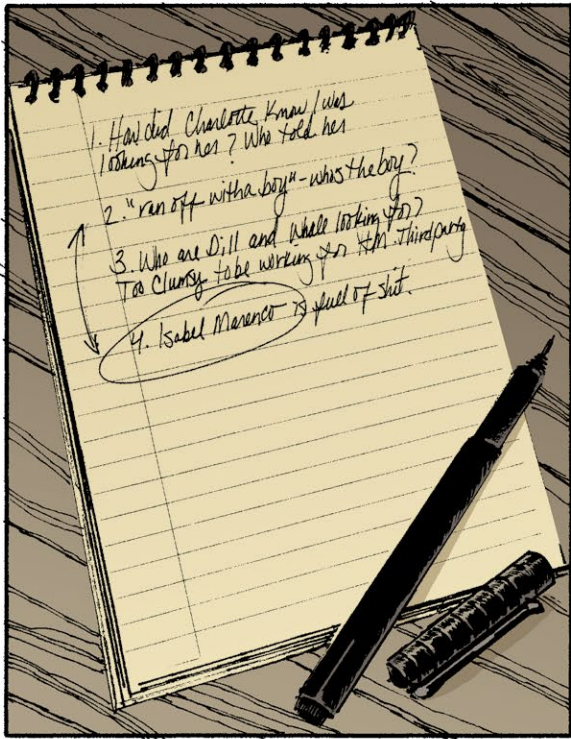 1. How did Charlotte know I was
looking for her? Who told her
2. "ran off with a boy" - who's the boy?
3. Who are Dill and Whale looking for?
Too clumsy to be working for HM. Third party
4. Isabel Marenco is full of shit.